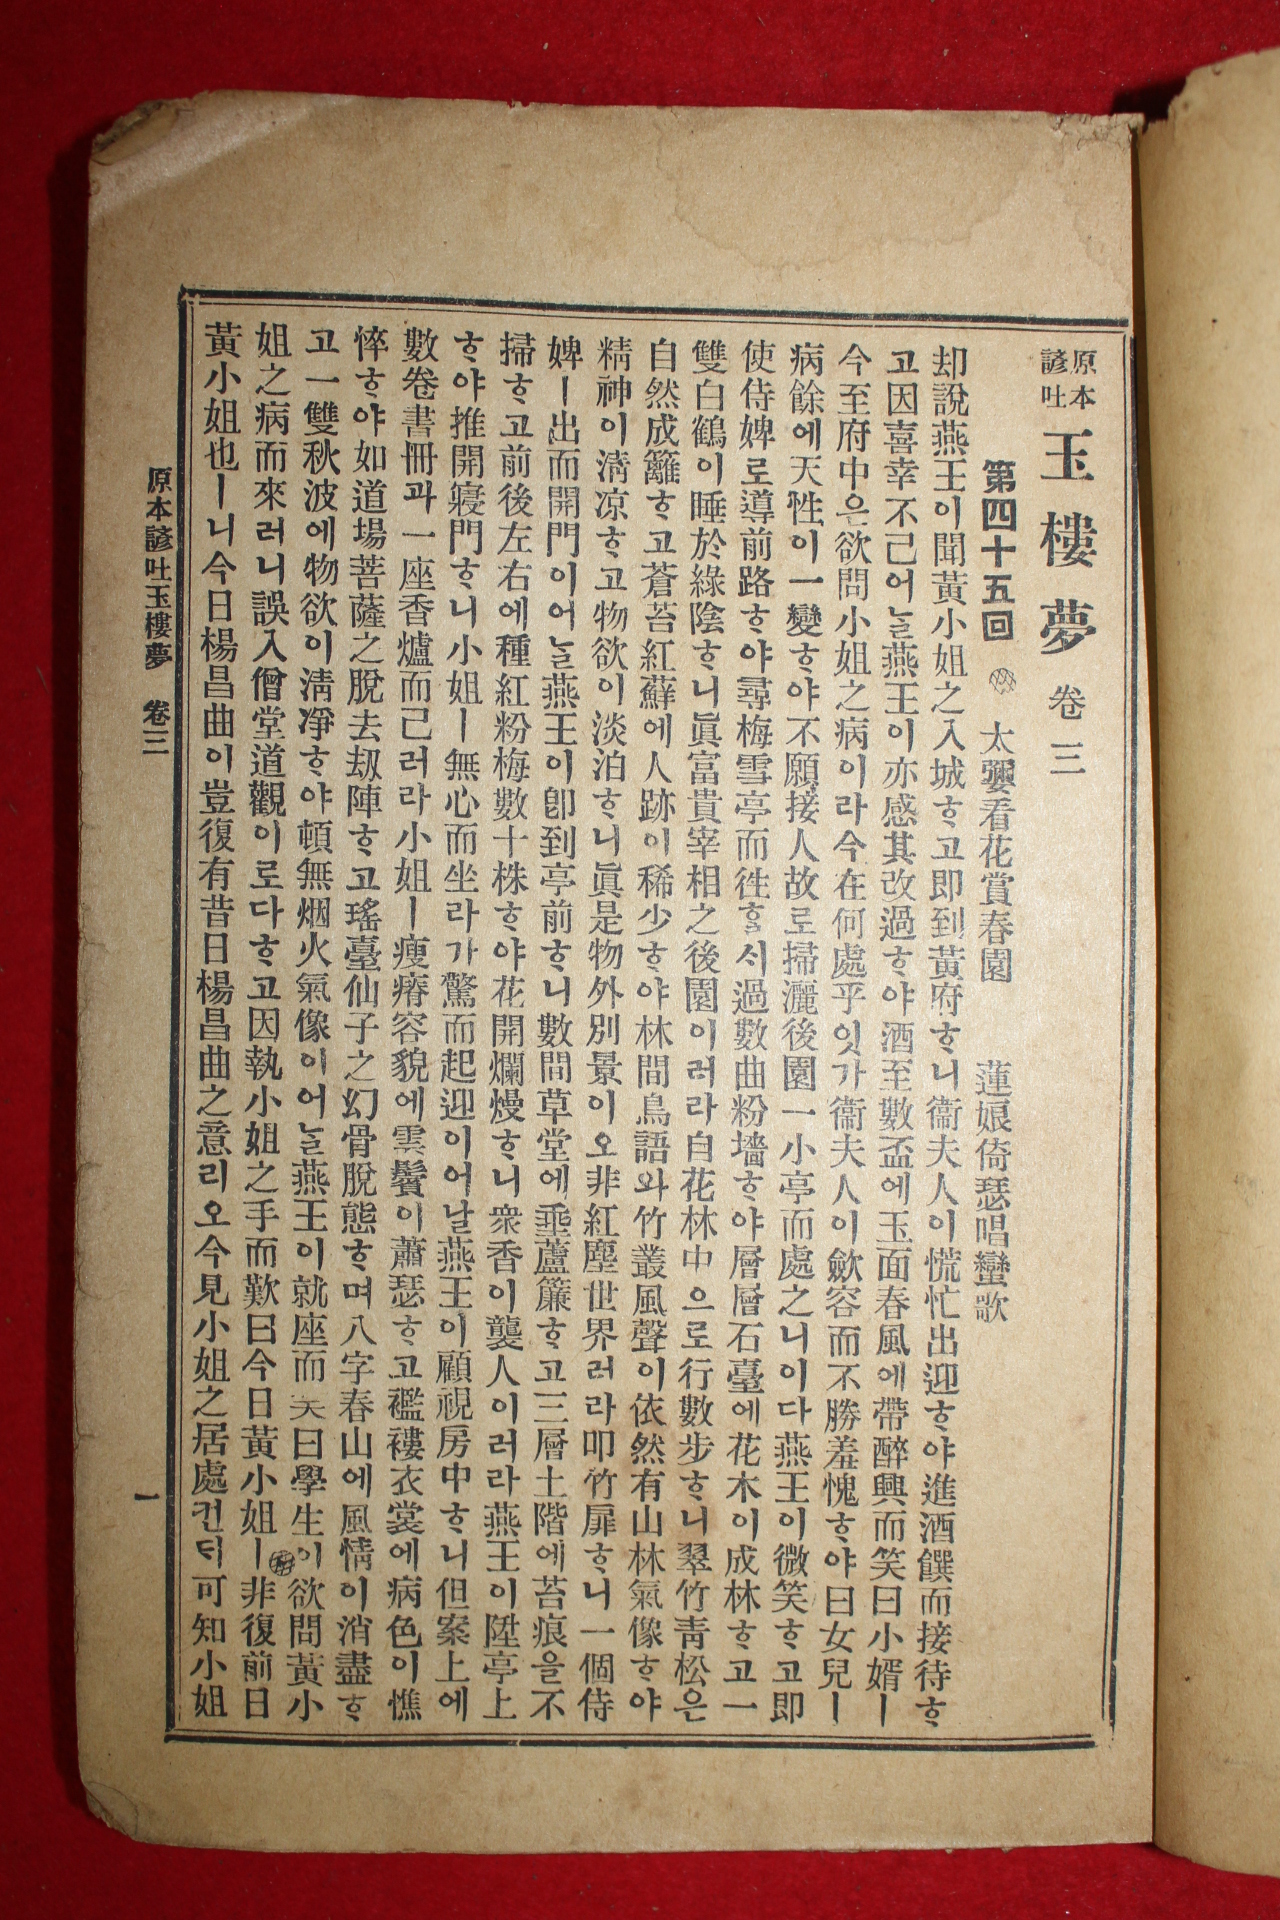 原本諺吐 玉樓夢 卷三
第四十五回 太㜲看花賞春園 蓮娘倚瑟唱蠻歌
却說燕王이聞黃小姐之入城ᄒᆞ고即到黃府ᄒᆞ니衞夫人이慌忙出迎ᄒᆞ야進酒饌而接待ᄒᆞ
고因喜幸不己어ᄂᆞᆯ燕王이亦感其改過ᄒᆞ야酒至數盃에玉面春風에帶醉興而笑曰小婿ㅣ
今至府中은欲問小姐之病이라今在何處乎잇가衞夫人이歛容而不勝羞愧ᄒᆞ야曰女兒ㅣ
病餘에天性이一變ᄒᆞ야不願接人故로掃灑後園一小亭而處之니이다燕王이微笑ᄒᆞ고即
使侍婢로導前路ᄒᆞ야尋梅雪亭而徃ᄒᆞᆯᄉᆡ過數曲粉墻ᄒᆞ야層層石臺에花木이成林ᄒᆞ고一
雙白鶴이睡於綠陰ᄒᆞ니眞富貴宰相之後園이러라自花林中으로行數步ᄒᆞ니翠竹靑松은
自然成籬ᄒᆞ고蒼苔紅蘚에人跡이稀少ᄒᆞ야林間鳥語와竹叢風聲이依然有山林氣像ᄒᆞ야
精神이淸凉ᄒᆞ고物欲이淡泊ᄒᆞ니眞是物外別景이오非紅塵世界러라叩竹扉ᄒᆞ니一個侍
婢ㅣ出而開門이어ᄂᆞᆯ燕王이卽到亭前ᄒᆞ니數間草堂에垂蘆簾ᄒᆞ고三層土階에苔痕을不
掃ᄒᆞ고前後左右에種紅粉梅數十株ᄒᆞ야花開爛熳ᄒᆞ니衆香이襲人이러라燕王이陞亭上
ᄒᆞ야推開寢門ᄒᆞ니小姐ㅣ無心而坐라가驚而起迎이어날燕王이顧視房中ᄒᆞ니但案上에
數卷書冊과一座香爐而己러라小姐ㅣ瘦瘠容貌에雲鬢이蕭瑟ᄒᆞ고襤褸衣裳에病色이憔
悴ᄒᆞ야如道場菩薩之脫去刼陣ᄒᆞ고瑤臺仙子之幻骨脫態ᄒᆞ며八字春山에風情이消盡ᄒᆞ
고一雙秋波에物欲이淸凈ᄒᆞ야頓無烟火氣像이어ᄂᆞᆯ燕王이就座而笑曰學生이欲問黃小
姐之病而來러니誤入僧堂道觀이로다ᄒᆞ고因執小姐之手而歎曰今日黃小姐ㅣ非復前日
黃小姐也ㅣ니今日楊昌曲이豈復有昔日楊昌曲之意리오今見小姐之居處컨ᄃᆡ可知小姐
原本諺吐玉樓夢 卷三
一